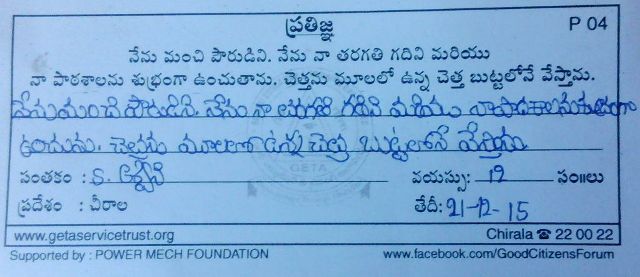 ప్రతిజ్ఞ P 04
నేను మంచి పౌరుడిని. నేను నా తరగతి గదిని మరియు
నా పాఠశాలను శుభ్రంగా ఉంచుతాను. చెత్తను మూలలో ఉన్న చెత్త బుట్టలోనే వేస్తాను.
నేను మంచి పౌరుడిని. నేను నా తరగతి గదిని మరియు నా పాఠశాలను శుభ్రంగా
ఉంచుతను. చెత్తను మూలలో ఉన్న చెత్త బుట్టలోనే వేస్తాను
సంతకం : S. వయస్సు: 12 సం॥లు
ప్రదేశం : చీరాల తేదీ: 21-12-15
www.getaservicetrust.org Chirala ☎ 22 00 22
Supported by : POWER MECH FOUNDATION www.facebook.com/GoodCitizensForum
GETA